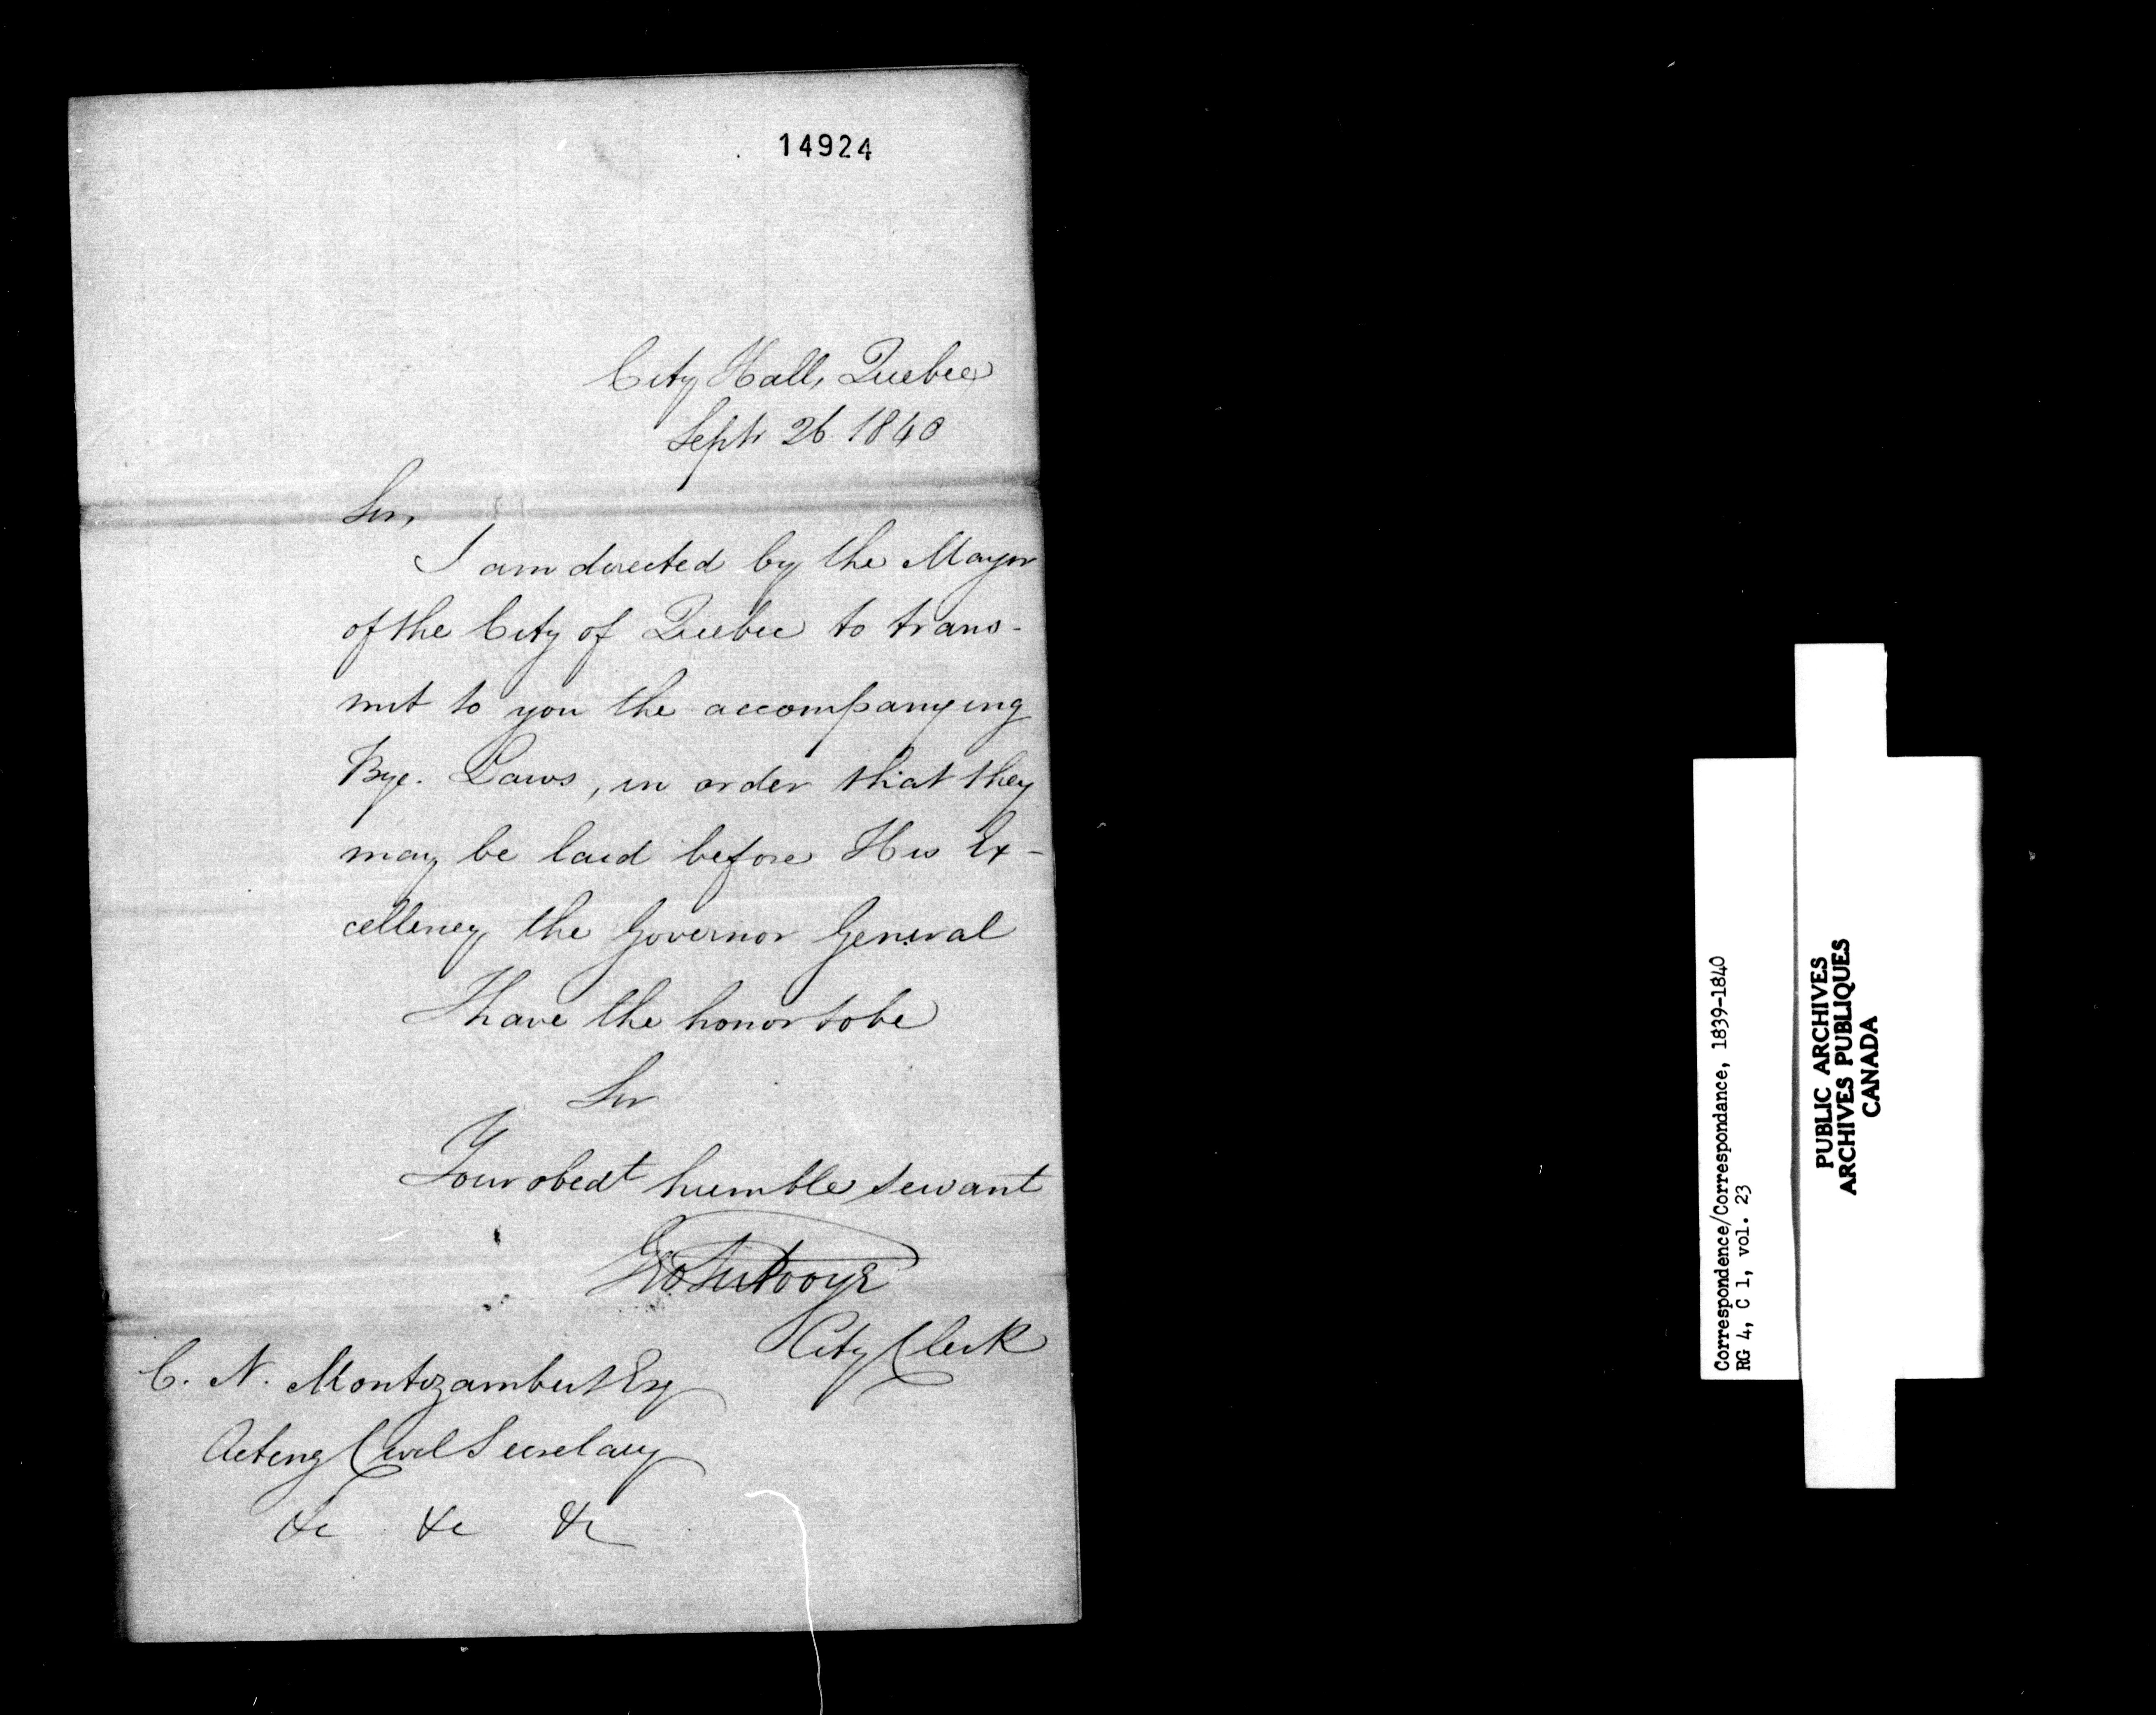 14924
City Hall, Quebec
Sept. 26 1840
Sir,
I am directed by the Mayor
of the City of Quebec to trans-
mit to you the accompanying
Bye. Laws, in order that they
may be laid before His Ex-
cellency the Governor General
I have the honor to be
Sir
Your obedt humble servant
Geo
City Clerk
C. N. Montizambert Esq
Acting Civil Secretary
&c &c &c
Correspondence/Correspondance, 1839-1840
RG 4, C 1, vol. 23
PUBLIC ARCHIVES
ARCHIVES PUBLIQUES
CANADA